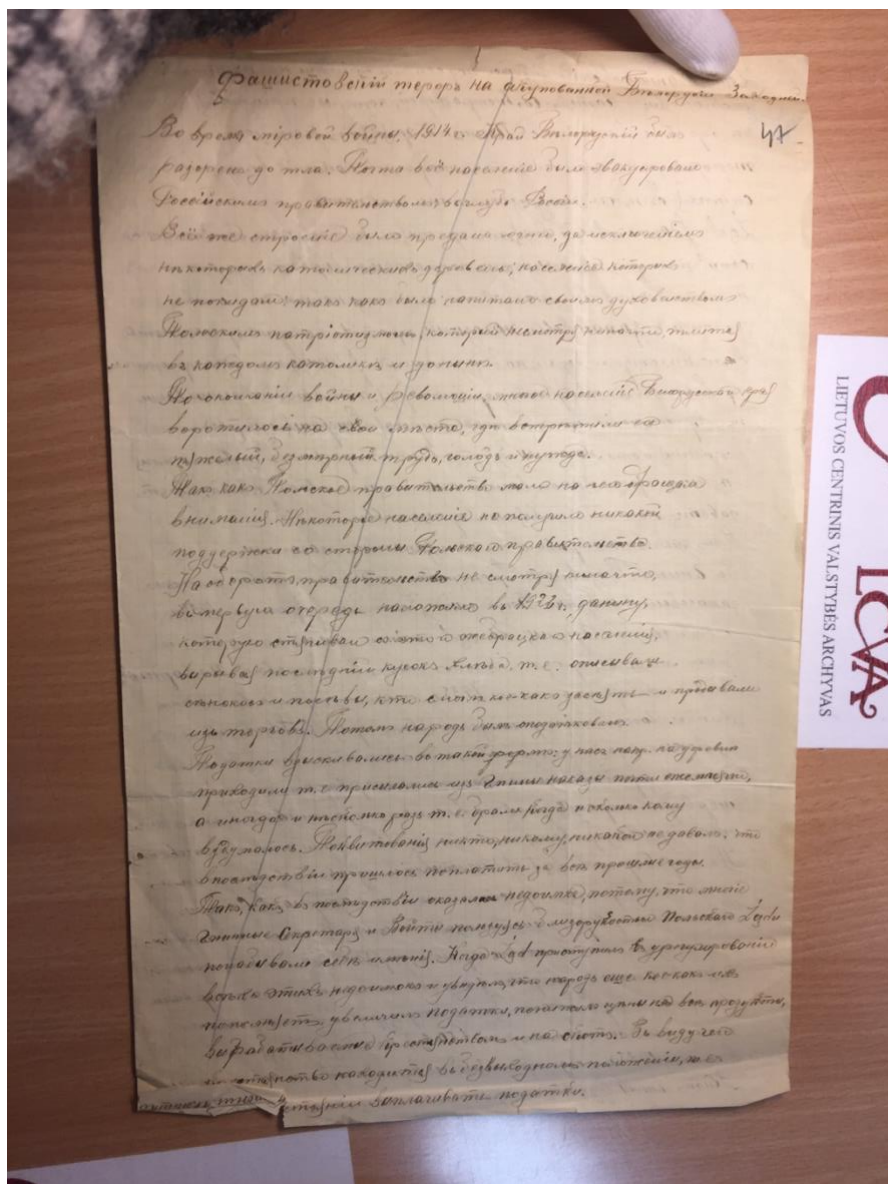 Фашистовскій терорь на окупованной Бѣларуси Заходней.
47
Во время міровой войны, 1914 г. Край Бѣлорускій был
разорень до тла. Почти всё населеніе было эвакуировано
Россійскимъ правительствомъ въ глубь Россіи.
Всё же строеніе было предано огню, за исключеніемъ
нѣкоторыхъ католическихъ деревень, населеніе которыхъ
не покидали, такъ какъ было напитано своимъ духовенствомъ
Польскимъ патріотизмомъ, который несмотря ни на что, тлится
въ каждомъ католикѣ и донынѣ.
По окончаніи войны и революціи, населеніе
воротилось на свои мѣста, гдѣ встрѣтили ея
тяжелый, безмѣрный трудъ, голодъ и нужда.
Такъ какъ Польское правительство мало на него обращала
вниманія. Нѣкоторое населеніе не получило никакой
поддержки со стороны Польскаго правительства.
На оборотъ, правительство не смотря ни на что,
въ первую очередь наложило въ 1922 г. данину,
которую стягивали
вырывая послѣдній кусокъ хлѣба, т. е. описывали
и посѣвы, кто смогъ кое-какъ засѣять и продавали
изъ торговъ. Потомъ народъ былъ
Податки взыскивались въ такой формѣ: у насъ напр. на деревни
приходили т. е. присылались изъ Гмины наказы почти ежемѣсячно,
а иногда и нѣсколько разъ т. е. брали когда и сколько кому
вздумалось. Поквитованія никто, никому, никакой не давалъ. что
впослѣдствіи пришлось поплатить за всѣ прошлые годы.
Такъ, какъ въ послѣдствіи оказалась недоимка, потому, что многіе
Гминные Секретари и Войты пользуясь близорукостью Польскаго Ządu
себѣ имѣнія. Когда Ząd приступилъ къ урегулированію
всѣхъ этихъ недоимокъ и увидѣлъ, что народъ еще кое-какъ ихъ
пополняетъ, увеличилъ податки, понизилъ цѣны на всѣ продукты,
вырабатываемые крестьянствомъ и на скотъ. Въ виду чего
крестьянство находится въ безвыходномъ положеніи, не въ
выплачивать податки.
LIETUVOS CENTRINIS VALSTYBĖS ARCHYVAS
LCVA